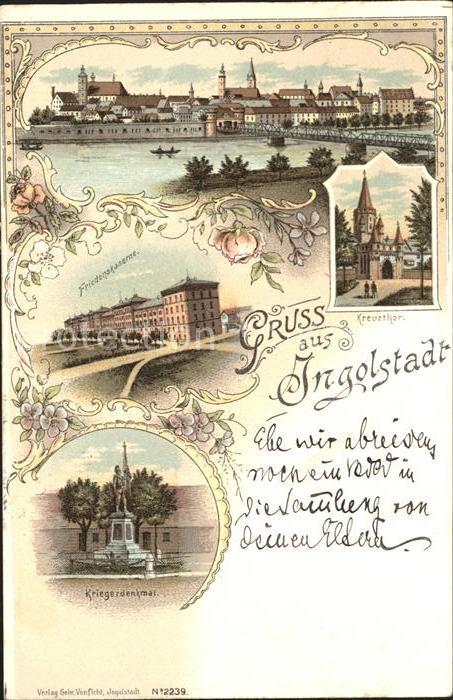 Friedenskaserne.
Kreuzthor.
GRUSS
aus
Ingolstadt
Ehe wir abreisen,
noch ein in
die Sammlung von
deinen Eltern.
Kriegerdenkmal.
Verlag Gebr. Vonficht, Ingolstadt. No 2239.